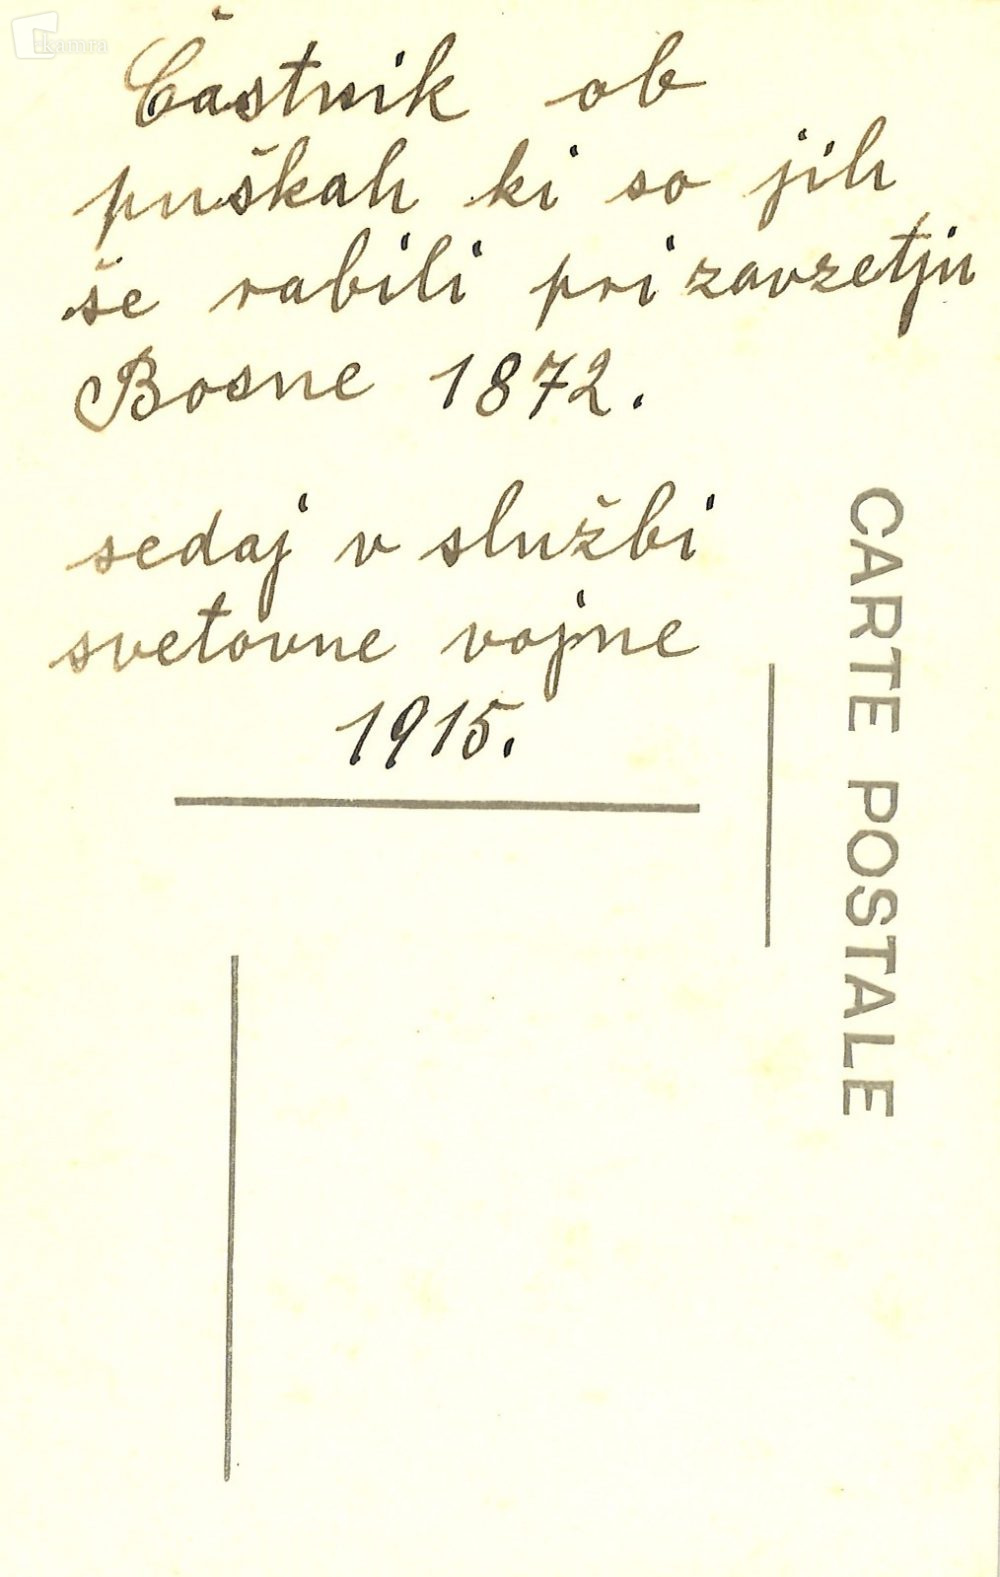 Častnik ob
puškah ki so jih
še rabili pri zavzetju
Bosne 1872.
sedaj v službi
svetovne vojne
1915.
CARTE POSTALE
kamra